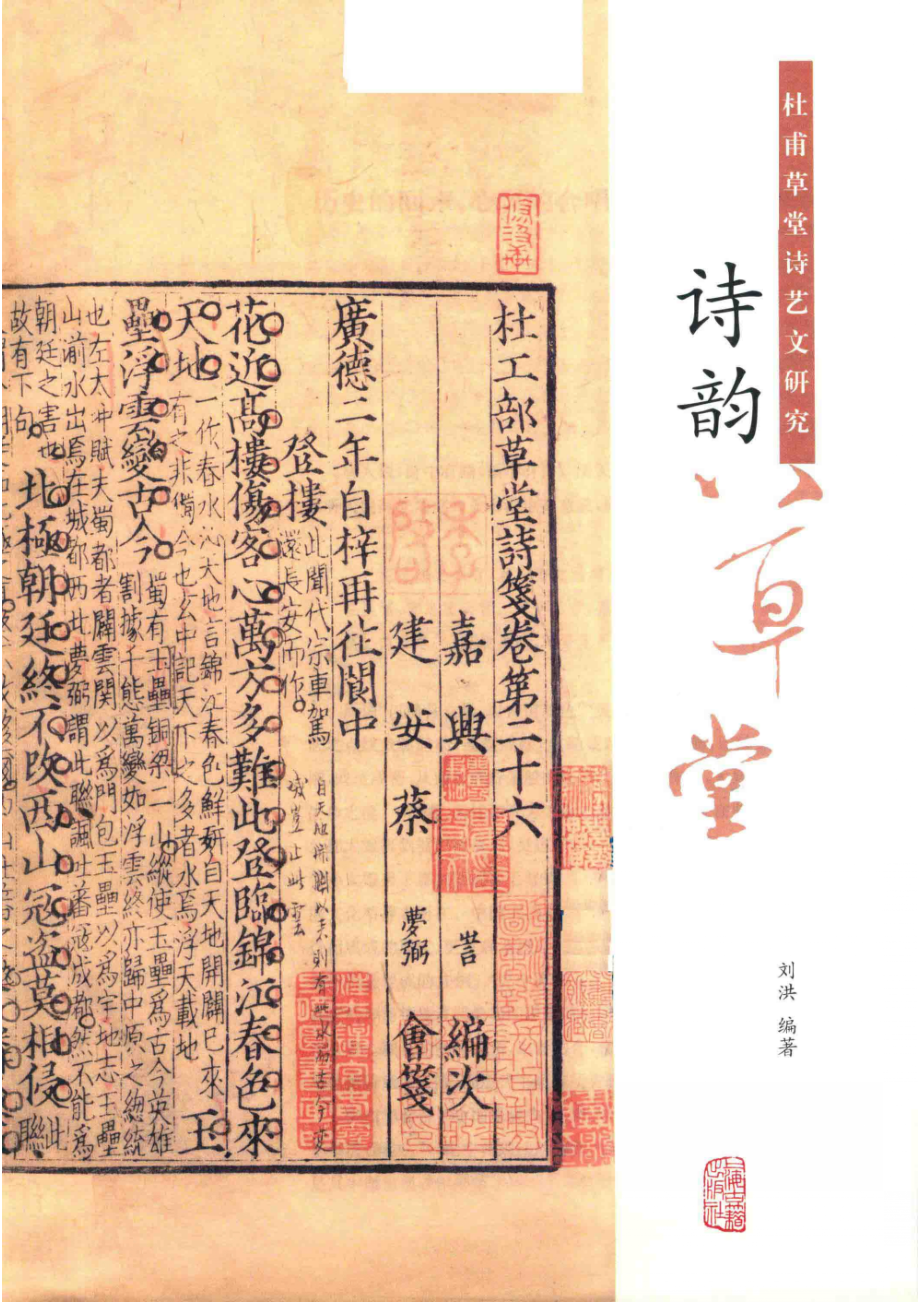 杜甫草堂诗艺文研究
诗韵
草堂
刘洪 编著
上海古籍出版社
杜工部草堂詩箋卷第二十六
嘉興 魯 訔 編次
建安蔡 夢弼 會箋
廣德二年自梓再往閬中
登樓
此聞代宗車駕
還長安而作
花近髙樓傷客心萬方多難此登臨錦江春色來
天地
一作春水沁天地言錦江春色鮮妍自天地開闢已來
有之非僃今也玄中記天下之多者水焉浮天載地
玉
壘浮雲變古今
蜀有玉壘銅梁二山縱使玉壘爲古今英雄
割據千態萬變如浮雲終亦歸中原之總統
也左太冲賦夫蜀都者闢雲関以爲門包玉壘以爲宇地志玉壘
山湔水出焉在城都西此夢弼謂此聯
成都然不能爲
朝廷之害也
故有下句
北極朝廷終不改西山冦盗莫相侵
此
聯